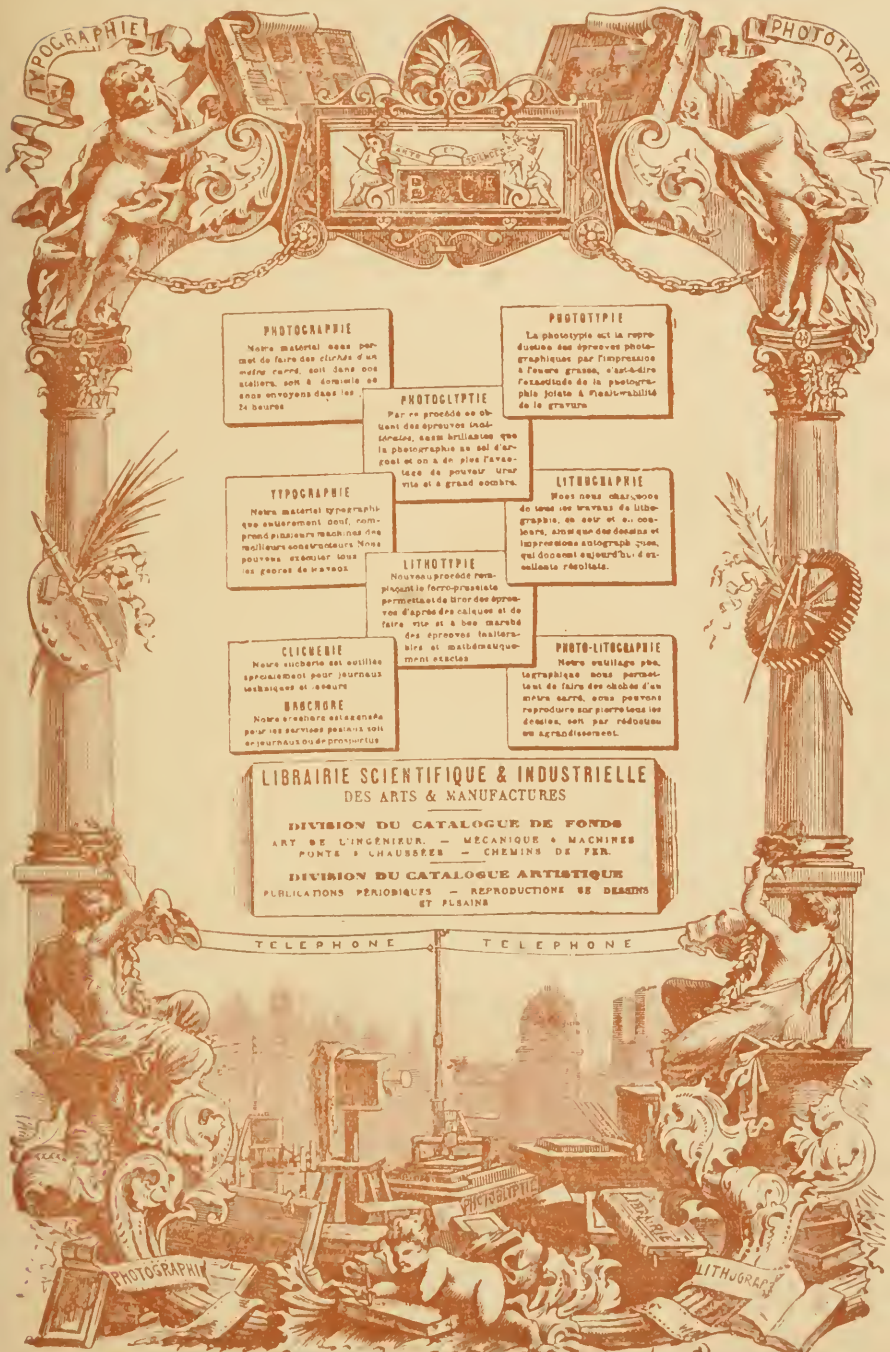 TYPOGRAPHIE
PHOTOTYPIE
ARTS ET SCIENCES
B & Cie
PHOTOGRAPHIE
Notre matériel nous per-
met de faire des clichés d'un
mètre carré, soit dans nos
ateliers, soit à domicile où
nous envoyons dans les
24 heures
PHOTOTYPIE
La phototypie est la repro-
duction des épreuves photo-
graphiques par l'impression
à l'encre grasse, c'est-à-dire
l'exactitude de la photogra-
phie jointe à l'inaltérabilité
de la gravure
PHOTOGLYPTIE
Par ce procédé on ob-
tient des épreuves inal-
térables, aussi brillantes que
la photographie au sel d'ar-
gent et on a de plus l'avan-
tage de pouvoir tirer
vite et à grand nombre.
TYPOGRAPHIE
Notre matériel typographi-
que entièrement neuf, com-
prend plusieurs machines des
meilleurs constructeurs Nous
pouvons exécuter tous
les genres de travaux
LITHOGRAPHIE
Nous nous chargeons
de tous les travaux de litho-
graphie, en noir et en cou-
leurs, ainsi que des dessins et
impressions autographiques,
qui donnent aujourd'hui d'ex-
cellents résultats.
LITHOTYPIE
Nouveau procédé rem-
plaçant le ferro-prussiate
permettant de tirer des épreu-
ves d'après des calques et de
faire vite et à bon marché
des épreuves inaltéra-
bles et mathématique-
ment exactes
CLICHERIE
Notre clicherie est outillée
spécialement pour journaux
techniques et
BROCHURE
Notre brochure est agencée
pour les services postaux soit
de journaux ou de prospectus
PHOTO-LITOGRAPHIE
Notre outillage pho-
tographique nous permet-
tant de faire des clichés d'un
mètre carré, nous pouvons
reproduire sur pierre tous les
dessins, soit par réduction
ou agrandissement.
LIBRAIRIE SCIENTIFIQUE & INDUSTRIELLE
DES ARTS & MANUFACTURES
DIVISION DU CATALOGUE DE FONDS
ART DE L'INGÉNIEUR. — MÉCANIQUE & MACHINES
PONTS & CHAUSSÉES — CHEMINS DE FER.
DIVISION DU CATALOGUE ARTISTIQUE
PUBLICATIONS PÉRIODIQUES — REPRODUCTIONS DE DESSINS
ET FUSAINS
TELEPHONE TELEPHONE
PHOTOGLYPTIE
LIBRAIRIE
PHOTOGRAPHIE
LITHOGRAPH